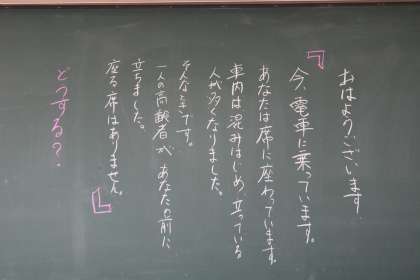 おはようございます
「今、電車に乗っています。
あなたは席に座わっています。
車内は混みはじめ立っている
人が多くなりました。
そんな中です。
一人の高齢者があなたの前に
立ちました。
座る席はありません。」
どうする？